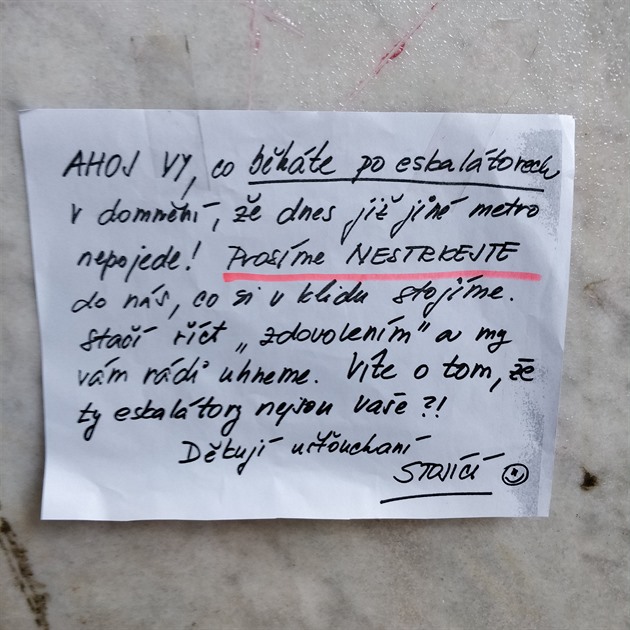 AHOJ VY, co běháte po eskalátorech
v domnění, že dnes již jiné metro
nepojede! Prosíme NESTRKEJTE
do nás, co si v klidu stojíme.
Stačí říct „zdovolením" a my
vám rádi uhneme. Víte o tom, že
ty eskalátory nejsou vaše?!
Děkují ušťouchaní
STOJÍCÍ